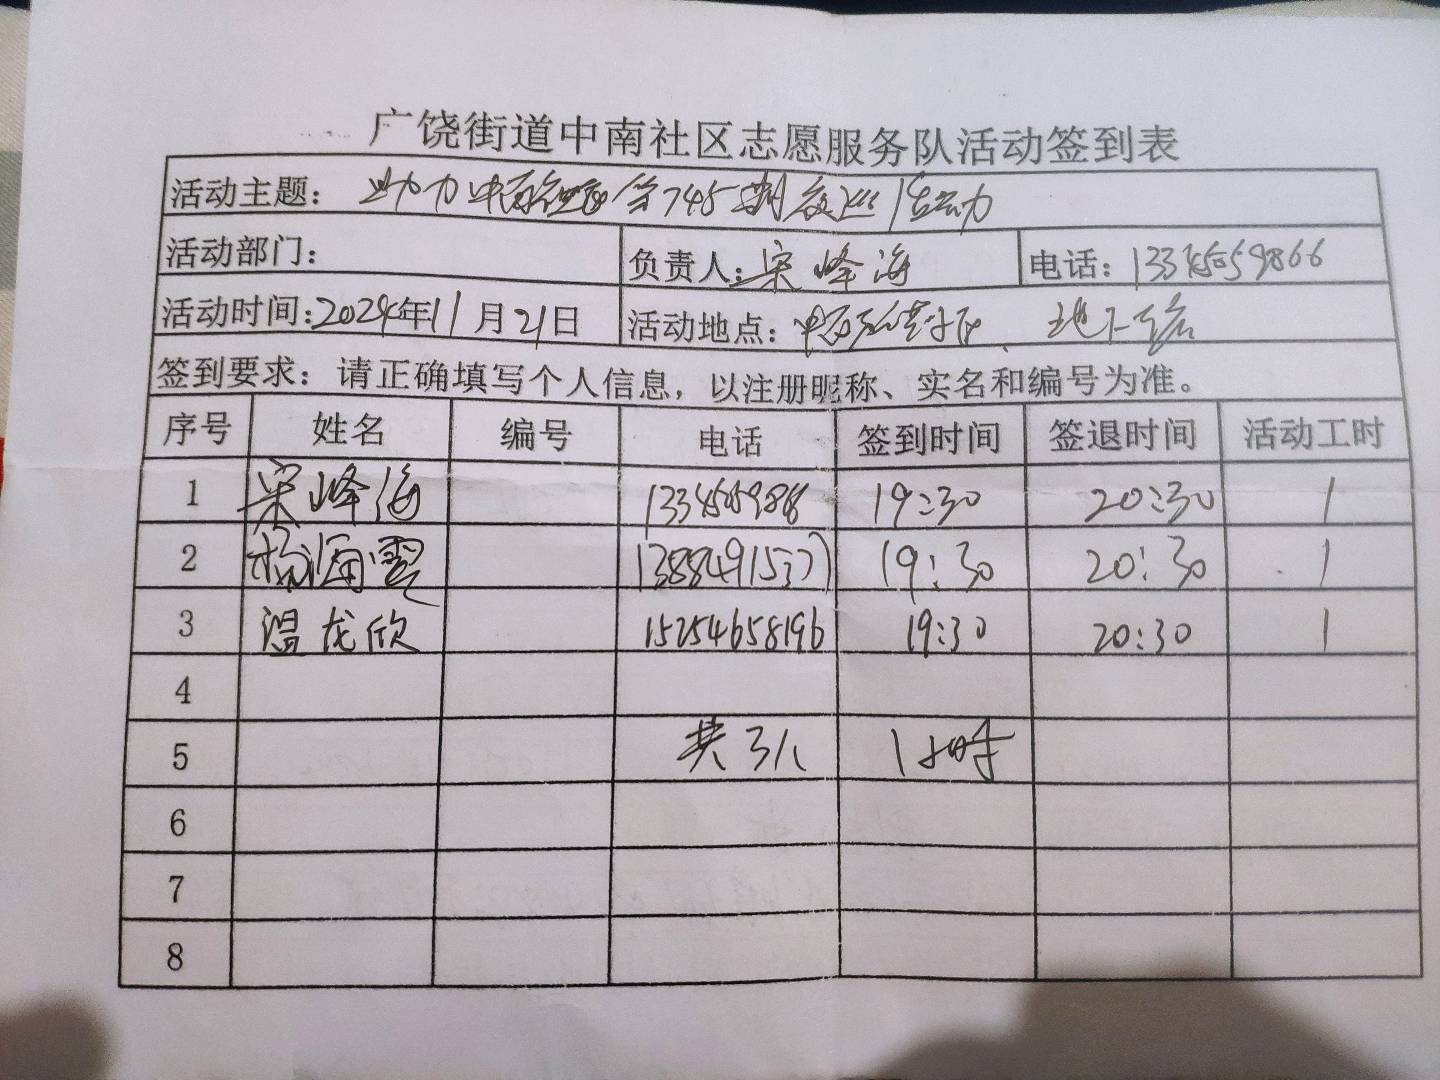 广饶街道中南社区志愿服务队活动签到表
活动主题： 助力中南 第745期夜巡活动
活动部门： 负责人：宋峰海 电话：13345059866
活动时间：2024年11月21日 活动地点： 地下
签到要求：请正确填写个人信息，以注册昵称、实名和编号为准。
序号 姓名 编号 电话 签到时间 签退时间 活动工时
1 宋峰海 19:30 20:30 1
2 杨海霞 13884915377 19:30 20:30 1
3 温龙欣 15254658196 19:30 20:30 1
4
5 共3人 1小时
6
7
8